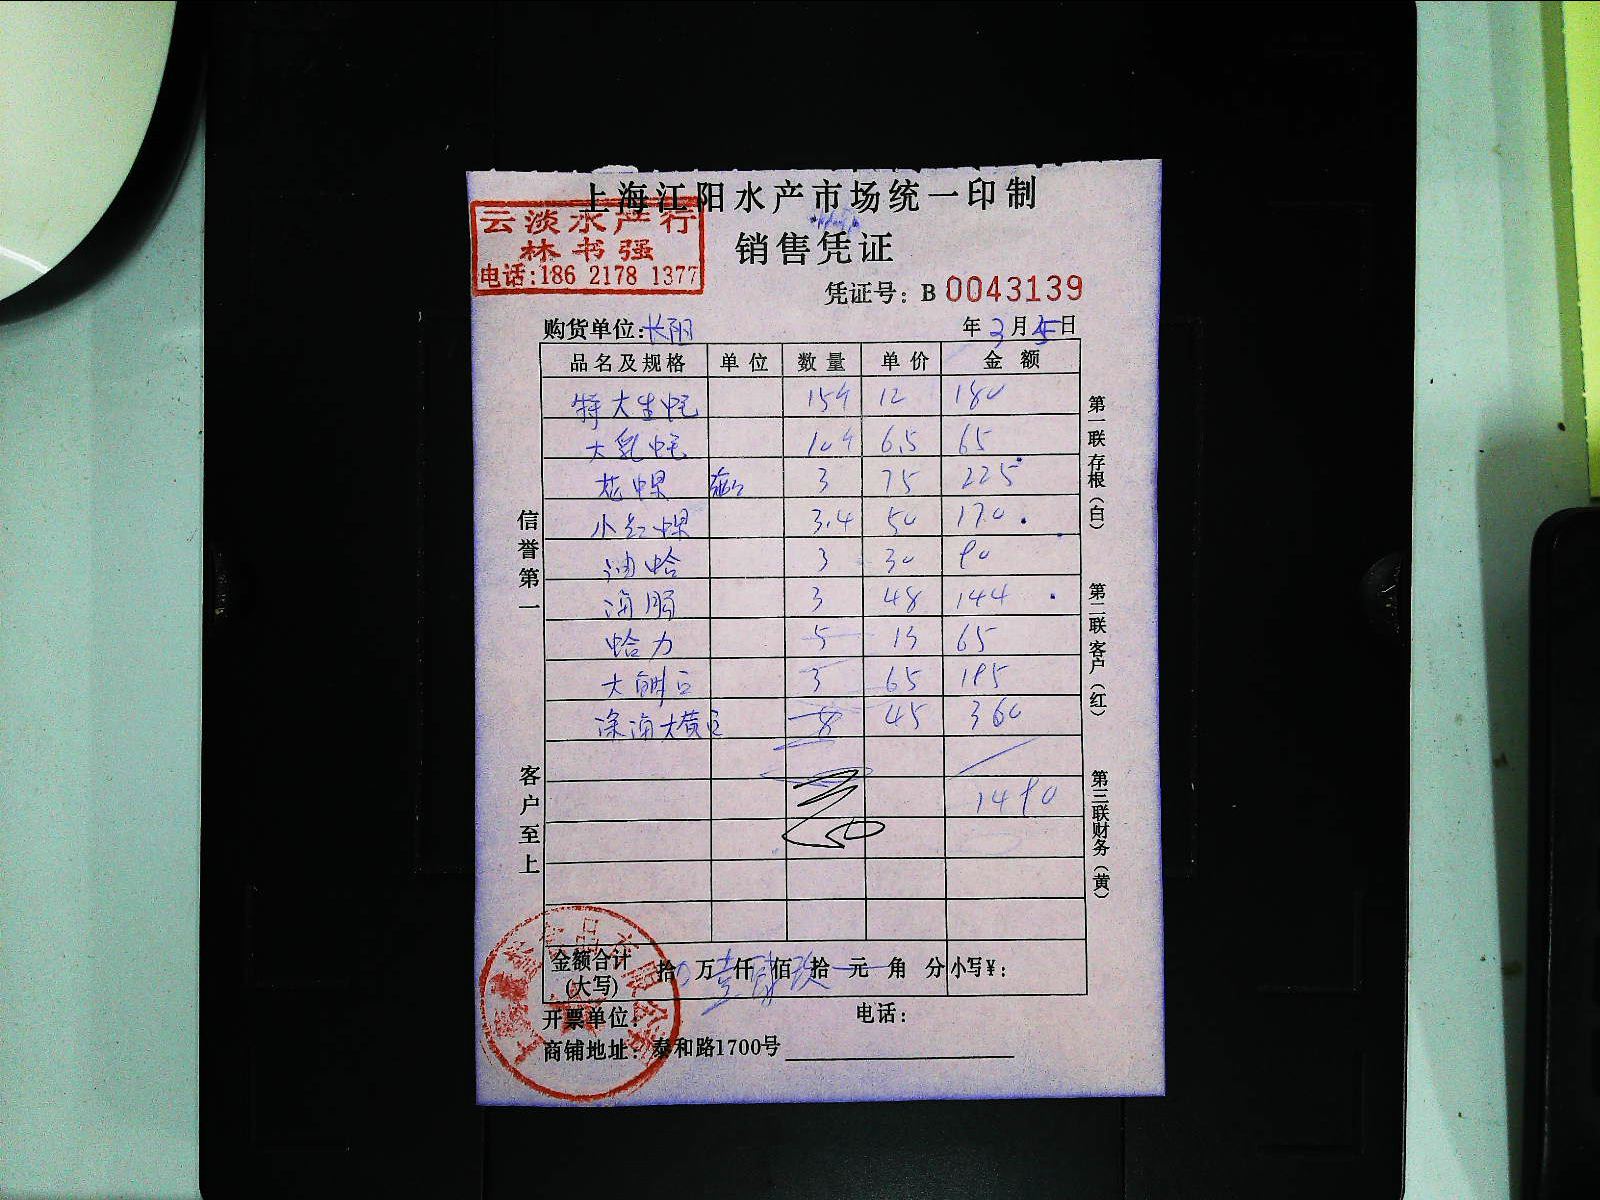 上海江阳水产市场统一印制
云淡水产行
林书强
电话:186 2178 1377
销售凭证
凭证号: B 0043139
购货单位:长阳 年 3 月 25 日
品名及规格 单位 数量 单价 金额
特大生蚝 15个 12 180
大乳蚝 10个 6.5 65
花螺 3 75 225
小红螺 3.4 50 170
油蛤 3 30 90
海肠 3 48 144
蛤力 5 13 65
大鲜贝 3 65 195
深海大黄贝 8 45 360
1490
信誉第一
客户至上
第一联 存根(白)
第二联 客户(红)
第三联 财务(黄)
金额合计 拾 万 壹 仟 肆 佰 玖 拾 元 角 分 小写¥:
(大写)
开票单位: 电话:
商铺地址: 泰和路1700号